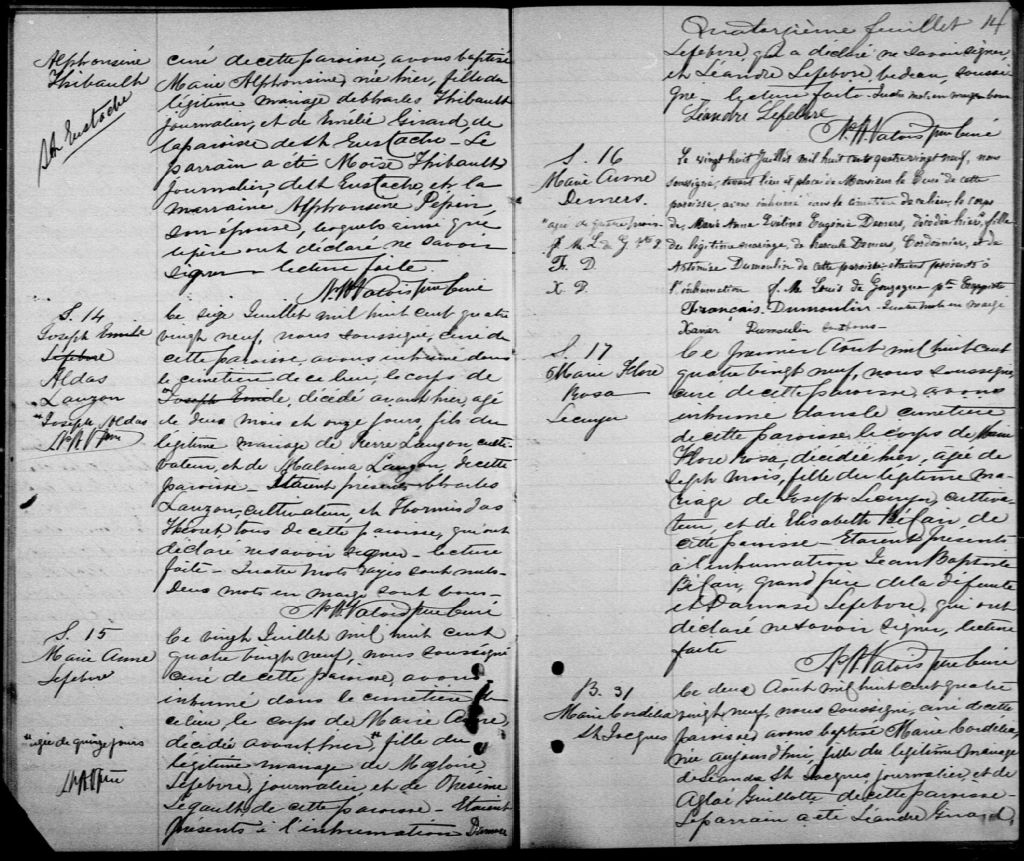 Alphonsine
Thibault
St Eustache
curé de cette paroisse, avons baptisé
Marie Alphonsine, née hier, fille du
légitime mariage de Charles Thibault
journalier, et de Emélie Girard, de
la paroisse de St Eustache - Le
parrain a été Moïse Thibault
journalier de St Eustache, et la
marraine Alphonsine Pépin,
son épouse, lesquels ainsi que
le père ont déclaré ne savoir
signer - lecture faite.
N. A. Valois ptre curé
S. 14
Joseph Emile
Lefebvre
Aldas
Lauzon
Joseph Aldas
N A V ptre
Le seize Juillet mil huit cent quatre
vingt neuf, nous soussigné, curé de
cette paroisse, avons inhumé dans
le cimetière de ce lieu, le corps de
Joseph Emile, décédé avant hier, agé
de deux mois et onze jours, fils du
légitime mariage de Pierre Lauzon, culti-
vateur, et de Malvina Lauzon, de cette
paroisse - Etaient présents Charles
Lauzon, cultivateur, et Hormisdas
Théoret, tous de cette paroisse, qui ont
déclaré ne savoir signer - lecture
faite - Quatre mots rayés sont nuls -
Deux mots en marge sont bons -
N. A. Valois ptre curé
S. 15
Marie Anne
Lefebvre
agée de quinze jours
N A V ptre
Le vingt Juillet mil huit cent
quatre vingt neuf, nous soussigné
curé de cette paroisse, avons
inhumé dans le cimetière de
ce lieu, le corps de Marie Anne,
décédée avant hier, fille du
légitime mariage de Magloire
Lefebvre, journalier, et de Onésime
Legault de cette paroisse - Etaient
présents à l'inhumation Damase
Quatorzième feuillet 14
Lefebvre, qui a déclaré ne savoir signer,
et Léandre Lefebvre bedeau, soussi-
gné, lecture faite. Quatre mots en marge bons
Léandre Lefebvre
N. A. Valois ptre curé
S. 16
Marie Anne
Demers.
agée de quatre mois
F. D.
X. D.
Le vingt huit Juillet mil huit cent quatre vingt neuf, nous
soussigné, tenant lieu et place de Monsieur le Curé de cette
paroisse, avons inhumé dans le cimetière de ce lieu, le corps
de Marie Anna Evelina Eugénie Demers, décédée hier, fille
du légitime mariage, de hercule Demers, Cordonnier, et de
Artémise Dumoulin de cette paroisse. étaient présents à
l'inhumation f. M. Louis de Gonzague ptre
François Dumoulin - Quatre mots en marge
Xavier Dumoulin bons -
S. 17
Marie Flore
Rosa
Lecuyer
Le premier Août mil huit cent
quatre vingt neuf, nous soussigné,
curé de cette paroisse, avons
inhumé dans le cimetière
de cette paroisse, le corps de Marie
Flore Rosa, décédée hier, agée de
sept mois, fille du légitime ma-
riage de Joseph Lecuyer, cultiva-
teur, et de Elisabeth Bélair, de
cette paroisse - Etaient présents
à l'inhumation Jean Baptiste
Bélair, grand père de la défunte
et Damase Lefebvre, qui ont
déclaré ne savoir signer, lecture
faite
N. A. Valois ptre curé
B. 31
Marie Cordélia
St Jacques
Le deux Août mil huit cent quatre
vingt neuf, nous soussigné, curé de cette
paroisse, avons baptisé Marie Cordélia,
née aujourd'hui, fille du légitime mariage
de Léandre St Jacques, journalier, et de
Aglaé Guillotte de cette paroisse -
Le parrain a été Léandre Girard,